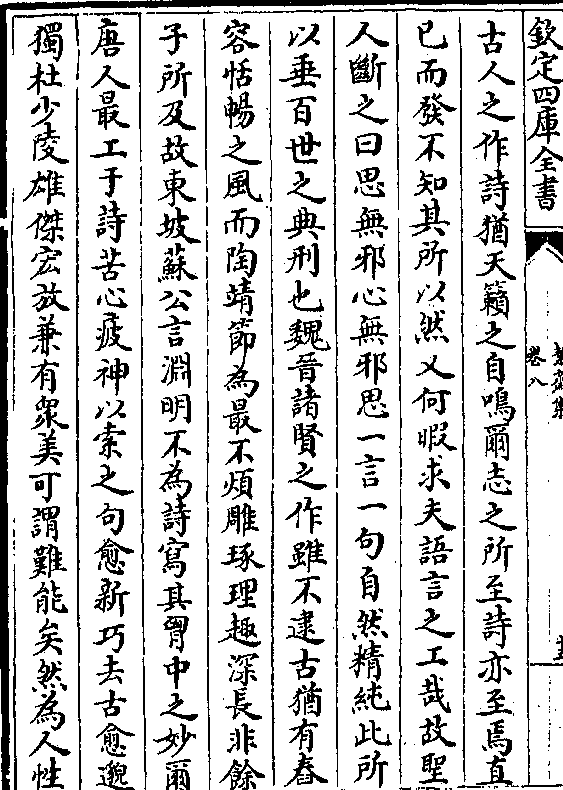 欽定四庫全書
卷八
古人之作詩猶天籟之自鳴爾志之所至詩亦至焉直
已而發不知其所以然又何暇求夫語言之工哉故聖
人斷之曰思無邪心無邪思一言一句自然精純此所
以垂百世之典刑也魏晉諸賢之作雖不逮古猶有舂
容恬暢之風而陶靖節為最不煩雕琢理趣深長非餘
子所及故東坡蘇公言淵明不為詩寫其胷中之妙爾
唐人最工于詩苦心疲神以索之句愈新巧去古愈邈
獨杜少陵雄傑宏放兼有衆美可謂難能矣然為人性